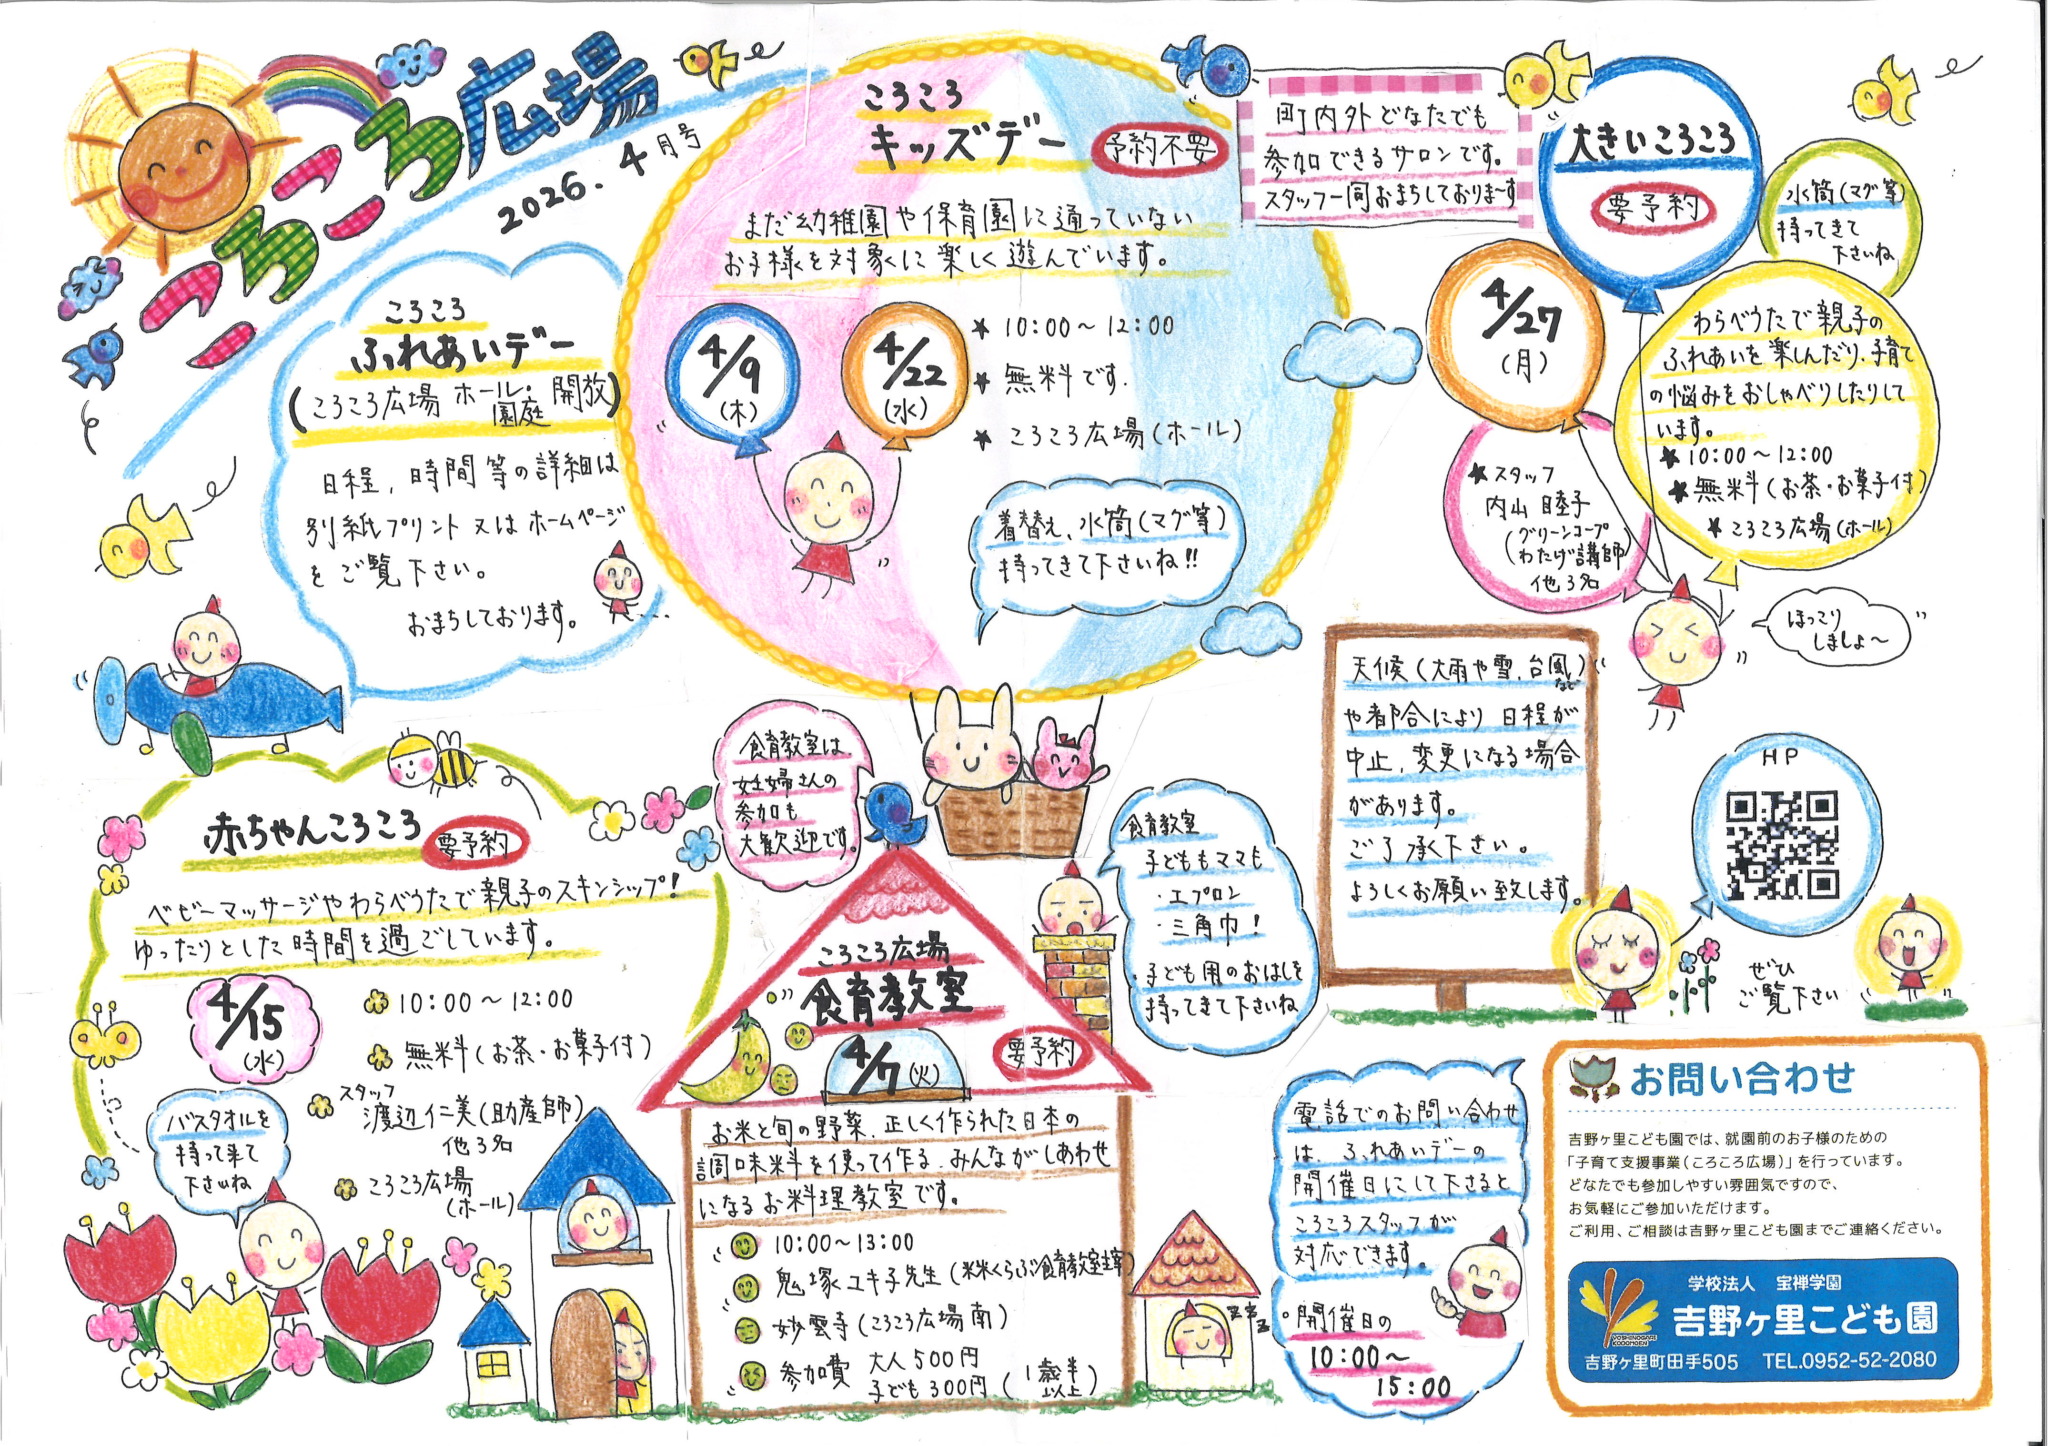 ころころ広場
2026.4月号
ころころ
ふれあいデー
(ころころ広場 ホール・園庭 開放)
日程、時間等の詳細は
別紙プリント又はホームページ
をご覧下さい。
おまちしております。
ころころ
キッズデー
予約不要
まだ幼稚園や保育園に通っていない
お子様を対象に楽しく遊んでいます。
4/9
(木)
4/22
(水)
★ 10:00～12:00
★ 無料です.
★ ころころ広場(ホール)
着替え、水筒(マグ等)
持ってきて下さいね!!
町内外どなたでも
参加できるサロンです。
スタッフ一同おまちしております
大きいころころ
要予約
水筒(マグ等)
持ってきて
下さいね
4/27
(月)
わらべうたで親子の
ふれあいを楽しんだり、子育て
の悩みをおしゃべりしたりして
います。
★ 10:00～12:00
★ 無料(お茶・お菓子付)
★ ころころ広場(ホール)
★ スタッフ
内山 睦子
(グリーンコープ
わたげ講師)
他3名
ほっこり
しましょ～
天候(大雨や雪、台風など)
や都合により日程が
中止、変更になる場合
があります。
ご了承下さい。
よろしくお願い致します。
HP
ぜひ
ご覧下さい
赤ちゃんころころ
要予約
ベビーマッサージやわらべうたで親子のスキンシップ!
ゆったりとした時間を過ごしています。
4/15
(水)
10:00～12:00
無料(お茶・お菓子付)
スタッフ
渡辺 仁美(助産師)
他3名
ころころ広場
(ホール)
バスタオルを
持って来て
下さいね
食育教室は
妊婦さんの
参加も
大歓迎です。
ころころ広場
食育教室
4/7(火)
要予約
お米と旬の野菜、正しく作られた日本の
調味料を使って作る、みんながしあわせ
になるお料理教室です。
10:00～13:00
鬼塚ユキ子先生(米米くらぶ食育教室主宰)
妙雲寺(ころころ広場南)
参加費 大人500円
子ども300円(1歳半以上)
食育教室
子どももママも
・エプロン
・三角巾!
・子ども用のおはしを
持ってきて下さいね
電話でのお問い合わせ
は、ふれあいデーの
開催日にして下さると
ころころスタッフが
対応できます。
・開催日の
10:00～
15:00
お問い合わせ
吉野ヶ里こども園では、就園前のお子様のための
「子育て支援事業(ころころ広場)」を行っています。
どなたでも参加しやすい雰囲気ですので、
お気軽にご参加いただけます。
ご利用、ご相談は吉野ヶ里こども園までご連絡ください。
学校法人 宝禅学園
吉野ヶ里こども園
YOSHINOGARI
KODOMOEN
吉野ヶ里町田手505 TEL.0952-52-2080